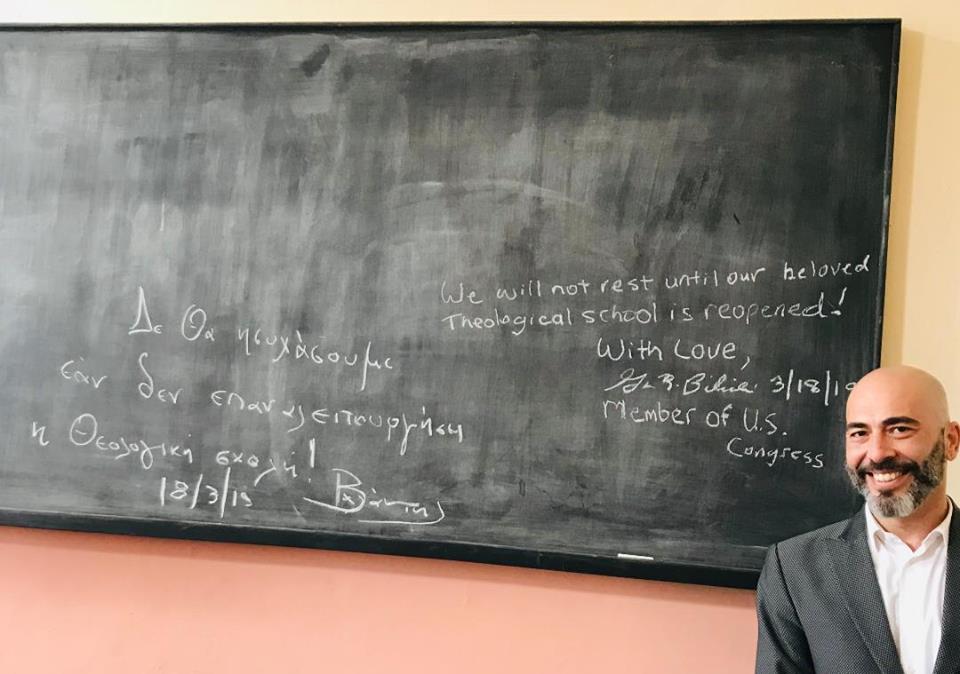 Δε Θα ησυχάσουμε
εάν δεν επαναλειτουργήση
η Θεολογική σχολή!
18/3/19
We will not rest until our beloved
Theological school is reopened!
With Love,
3/18/19
Member of U.S.
Congress